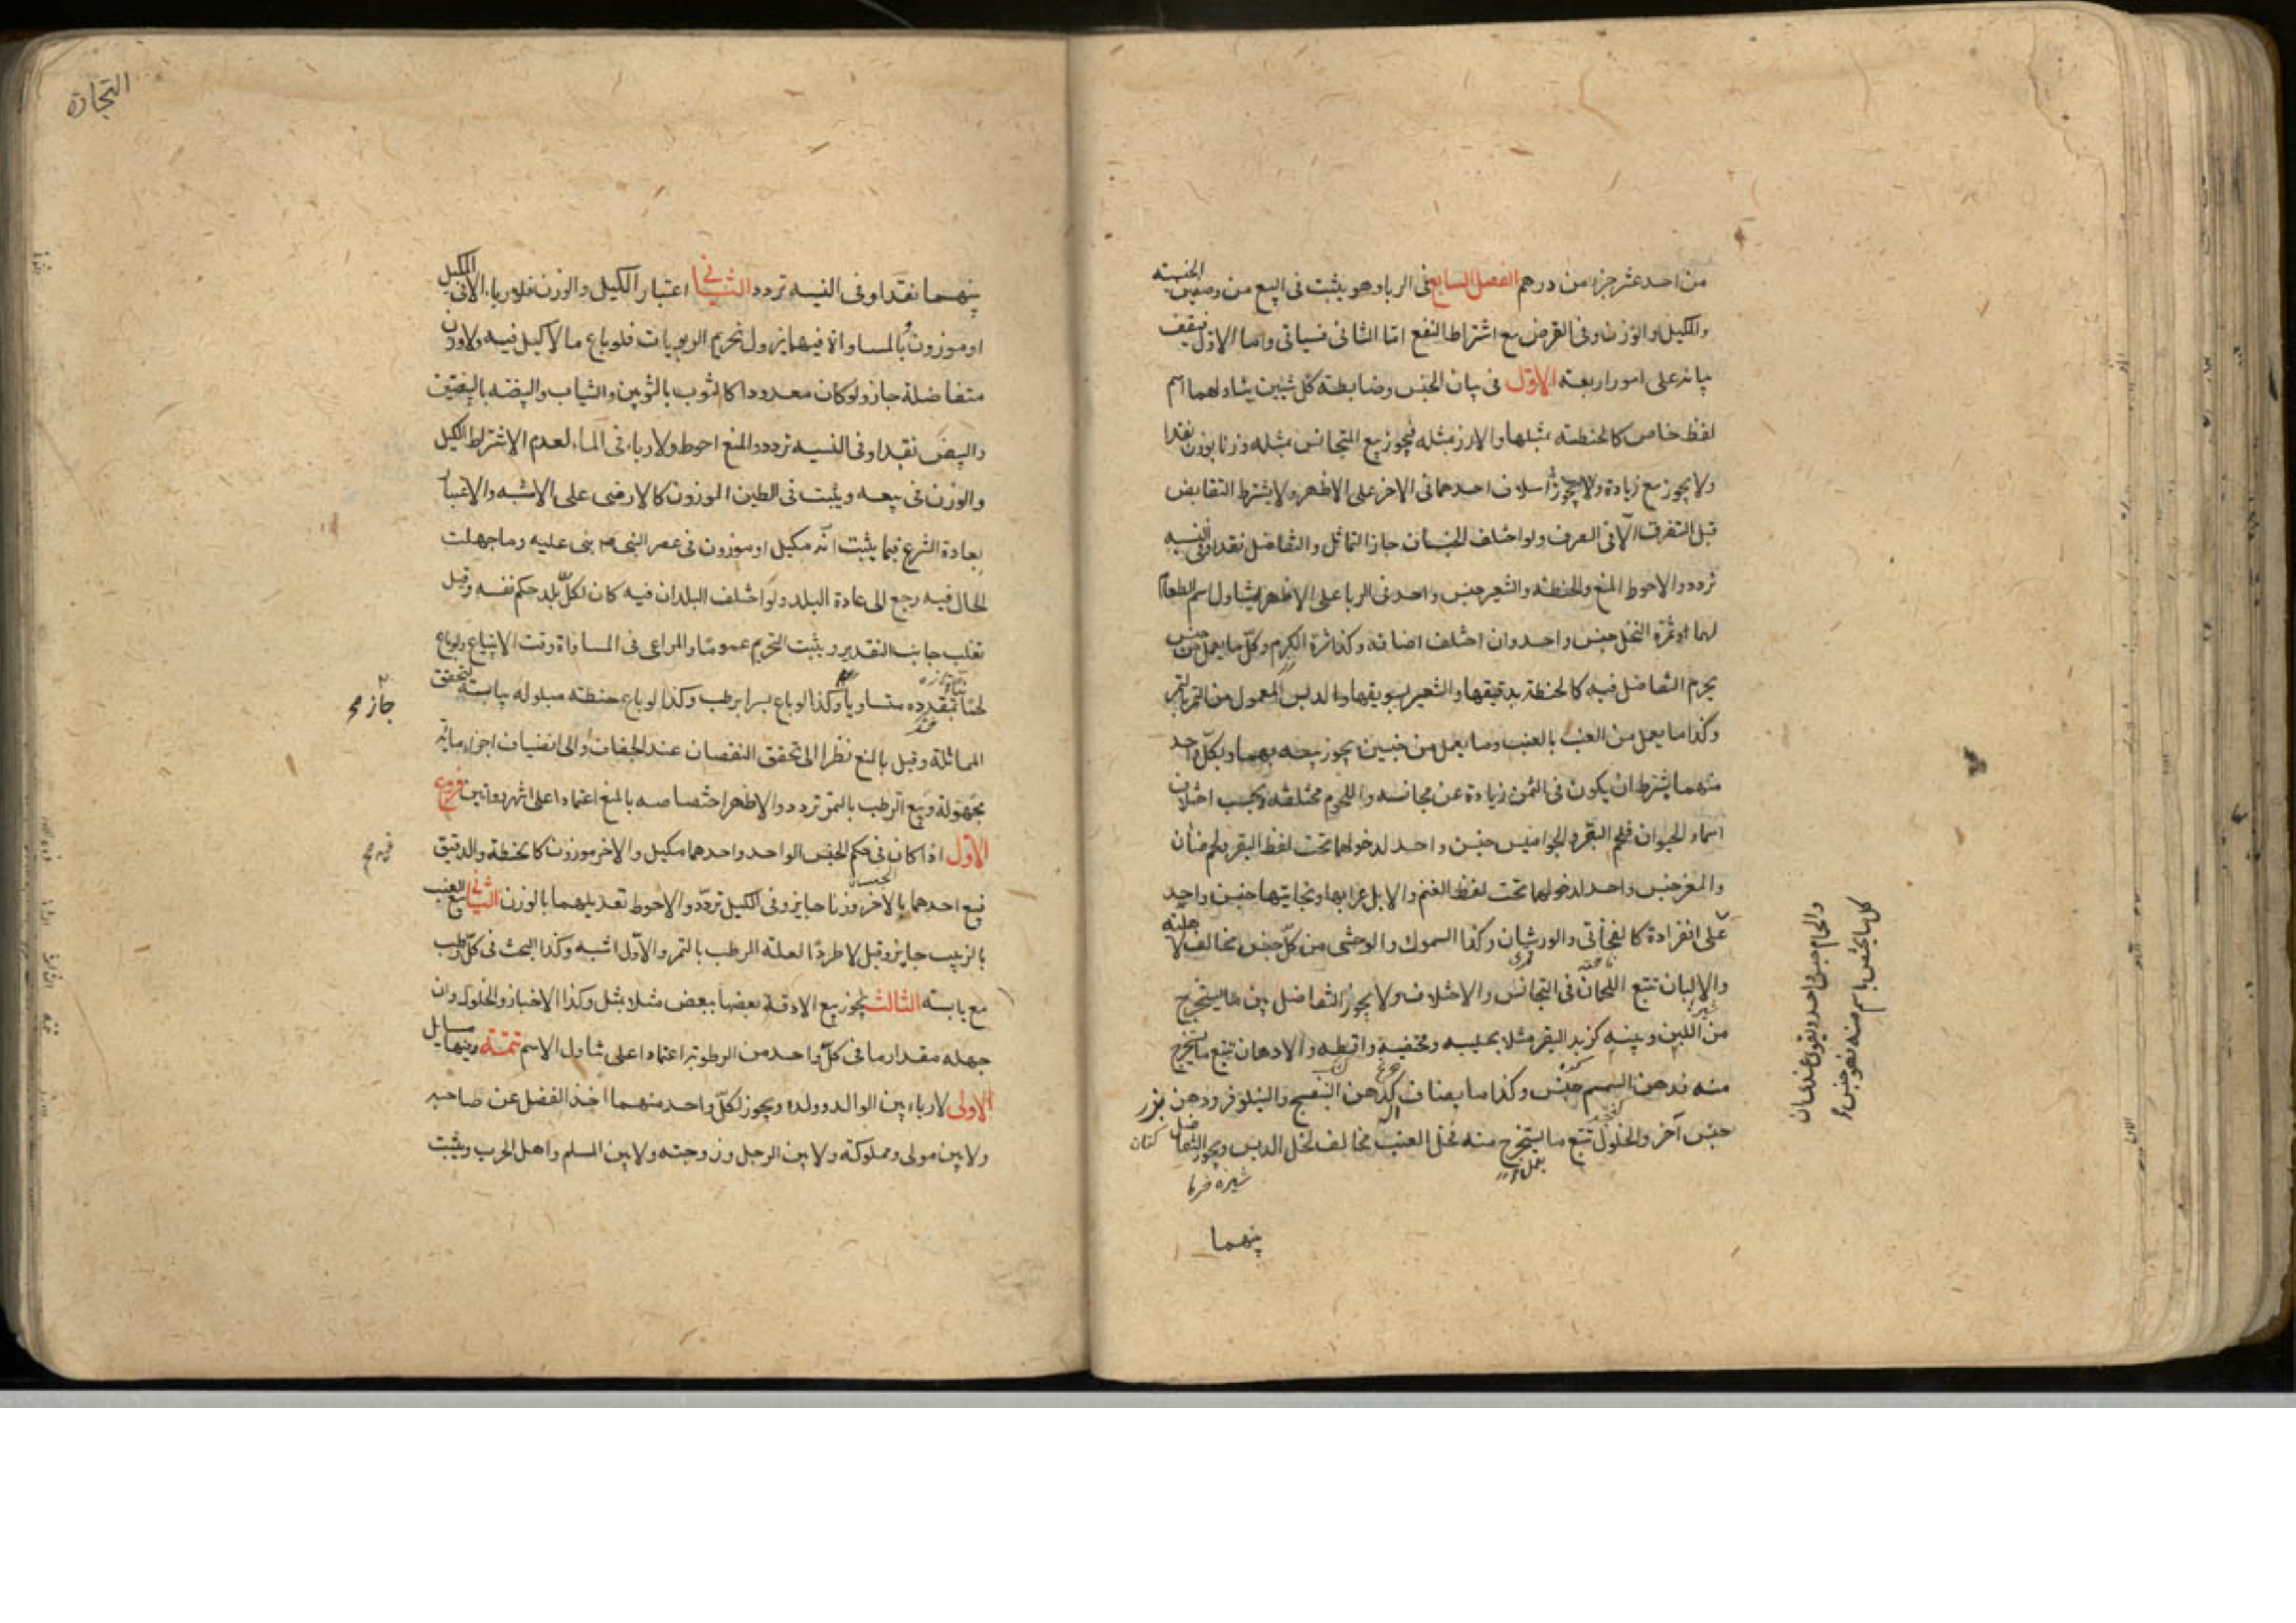 من احد عشر جزءا من درهم الفصل السابع فى الربا وهو يثبت فى البيع من وصفين الجنسيته
والكيل او الوزن وفى القرض مع اشتراط النفع امّا الثانى فسياتى واما الاوّل فيقف
بيانه على امور اربعته الاوّل فى بيان الجنس وضابطته كلّ شيئين يتناولهما اسم
لفظ خاص كالحنطته بمثلها والارز بمثله فيجوز بيع المتجانس بمثله وزنا بوزن نقدا
ولا يجوز مع زيادة ولا يجوز اسلاف احدهما فى الاخر على الاظهر ولا يشترط التقابض
قبل التفرق الّا فى الصرف ولو اختلف الجنسان جاز التماثل والتفاضل نقدا وفى النسيه
تردد والاحوط المنع والحنطته والشعير جنس واحد فى الربا على الاظهر لتناول اسم الطعام
لهما وثمرة النخل جنس واحد وان اختلف اصنافه وكذا ثمرة الكرم وكلّ ما يعمل من جنس
يحرم التفاضل فيه كالحنطة بدقيقها والشعير بسويقها والدبس المعمول من التمر بالتمر
وكذا ما يعمل من العنب بالعنب وما يعمل من جنسين يجوز بيعه بهما وبكلّ واحد
منهما بشرط ان يكون فى الثمن زيادة عن مجانسه واللحوم مختلفه بحسب اختلاف
اسماء الحيوان فلحم البقر والجواميس جنس واحد لدخولهما تحت لفظ البقر ولحم ضأن
والمعز جنس واحد لدخولهما تحت لفظ الغنم والابل عرابها وبخاتيها جنس واحد
والحمام جنس واحد ويقوى عندى ان
كل ما يختص باسم منه فهو جنس
على انفرادة كالفخاتى والورشان وكذا السموك والوحشى من كلّ جنس مخالف لاهليته
والالبان تتبع اللحمان فى التجانس والاختلاف ولا يجوز التفاضل بين ما يستخرج
من اللبن وبينه كزبد البقر مثلا بحليبه ومخيضه واقطه والادهان تتبع ما يستخرج
منه فدهن السمسم جنس وكذا ما يضاف اليه كدهن البنفسج والنيلوفر ودهن بزر
كتان
جنس آخر والخلول تتبع ما يستخرج منه فخل العنب مخالف لخل الدبس ويجوز التفاضل
شيره خرما
بينهما
التجارة
بينهما نقدا وفى النسيه تردد الثانى اعتبار الكيل والوزن فلا ربا الا فى مكيل
او موزون وبالمساواة فيهما يزول تحريم الربويات فلو باع ما لا كيل فيه ولا وزن
متفاضلة جاز ولو كان معدودا كالثوب بالثوبين والثياب والبيضه بالبيضتين
والبيض نقدا وفى النسيه تردد والمنع احوط ولا رباء فى الماء لعدم الاشتراط الكيل
والوزن فى بيعه ويثبت فى الطين الموزون كالارمنى على الاشبه والاعتبار
بعادة الشرع فيما يثبت انّه مكيل او موزون فى عصر النبى ص بنى عليه وما جهلت
الحال فيه رجع الى عادة البلد ولو اختلف البلدان فيه كان لكلّ بلد حكم نفسه وقيل
تغلب جانب التقدير ويثبت التحريم عموما والمراعى فى المساواة وقت الابتياع ولو باع
لحما بقديده متساويا وكذا لو باع بسرا برطب وكذا لو باع حنطته مبلوله بيابسته لتحقق
جاز
المماثلة وقيل بالمنع نظرا الى تحقق النقصان عند الجفاف او الى انضياف اجزاء مائيه
مجهولة وبيع الرطب بالتمر تردد والاظهر اختصاصه بالمنع اعتمادا على اشهر روايتين فروع
الاوّل اذا كان فى حكم الجنس الواحد واحدهما مكيل والاخر موزون كالحنطة والدقيق
فبيع احدهما بالاخر وزنا جايز وفى الكيل تردّد والاحوط تعديلهما بالوزن الثانى بيع العنب
بالزبيب جايز وقيل لا طردا لعلته الرطب بالتمر والاوّل اشبه وكذا البحث فى كلّ رطب
مع يابسته الثالث يجوز بيع الادقة بعضها ببعض مثلا بمثل وكذا الاخباز والخلول وان
جهله مقدار ما فى كلّ واحد من الرطوبته اعتمادا على تناول الاسم تتمّة وفيها مسايل
الاولى لا رباء بين الوالد وولده ويجوز لكلّ واحد منهما اخذ الفضل عن صاحبه
ولا بين مولى ومملوكته ولا بين الرجل وزوجته ولا بين المسلم واهل الحرب ويثبت